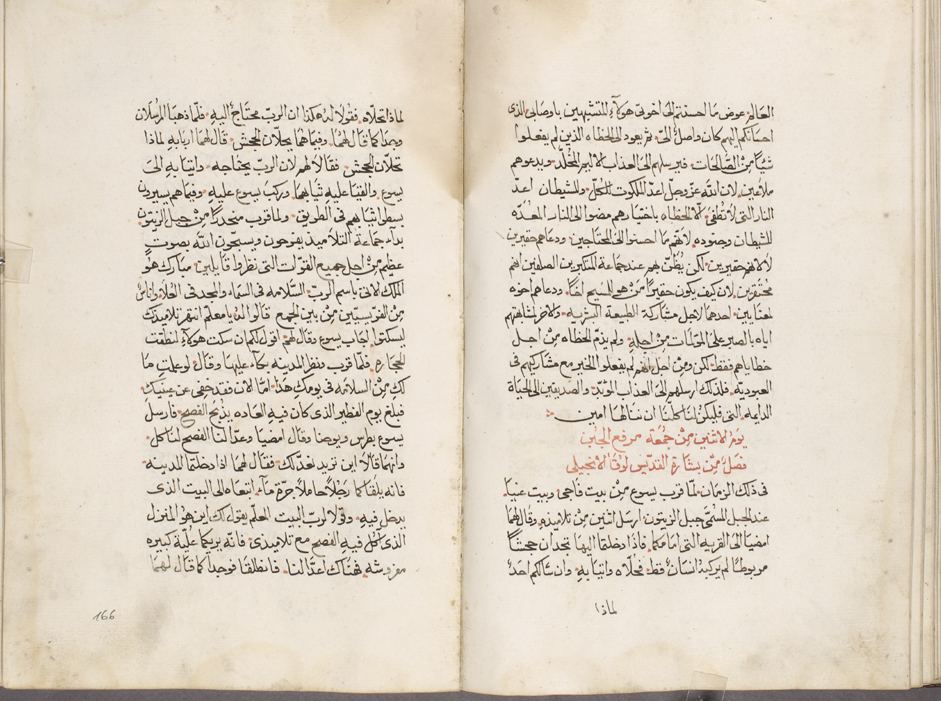 العالم عوض ما احسنتم الى اخوتي هولاء المتشبهين باوصافي الذي
احسانكم اليهم كان واصل اليّ ثم يعود الى الخطاه الذين لم يفعلوا
شيًا من الصالحات فيرسلهم الى العذاب الاليم المخلّد ويدعوهم
ملاعين لان الله عز وجل اعدّ الملكوت للكل وللشيطان اعدّ
النار التي لا تطفى الا الخطاه باختيارهم مضوا الى النار المعدّه
للشيطان وجنوده لانهم ما احسنوا الى المحتاجين ودعاهم حقيرين
لا لانهم حقيرين لكن يُظنّ بهم عند جماعة المتكبرين الصلفين انهم
محتقرين لان كيف يكون حقيرًا من هو للمسيح اخًا ودعاهم اخوه
لمعنايين احدهما لاجل مشاركة الطبيعة البشريه والاخر لمشابهتهم
اياه بالصبر على المحزنات من اجله ولم يذمّ الخطاه من اجل
خطاياهم فقط لكن ومن اجل انهم لم يفعلوا الخير مع مشاركيهم في
العبوديه فلذلك ارسلهم الى العذاب الموبد والصديقين الى الحياة
الدايمه التي فليكن لنا كلنا ان ننالها امين
يوم الاثنين من جمعة مرفع الجبن
فصل من بشارة القديس لوقا الانجيلي
في ذلك الزمان لما قرب يسوع من بيت فاجي وبيت عنيا
عند الجبل المسمّى جبل الزيتون ارسل اثنين من تلاميذه وقال لهما
امضيا الى القريه التي امامكما فاذا دخلتما اليها تجدان جحشًا
مربوطًا لم يركبه انسان قط فحلّاه واتيا به وان سالكم احد
لماذا
لماذا تحلّاه فقولا له هكذا ان الرب محتاج اليه فلما ذهبا المرسلان
وجدا كما قال لهما وفيما هما يحلّان الجحش قال لهما اربابه لماذا
تحلّان الجحش فقالا لهم لان الرب يحتاجه واتيا به الى
يسوع والقيا عليه ثيابهما وركب يسوع عليه وفيما هم يسيرون
بسطوا ثيابهم في الطريق ولما قرب منحدرًا من جبل الزيتون
بدأ جماعة التلاميذ يفرحون ويسبحون الله بصوتٍ
عظيم من اجل جميع القوات التي نظروا قايلين مبارك هو
الملك الاتي باسم الرب السلامه في السماء والمجد في العلاء واناسٌ
من الفريسيين من بين الجمع قالوا له يا معلم انتهر تلاميذك
ليسكتوا اجاب يسوع وقال لهم اقول لكم ان سكت هولاء لنطقت
الحجاره فلما قرب ونظر المدينه بكا عليها وقال لو علمتِ ما
لك من السلامه في يومك هذا اما الان فقد خفي عن عينيك
فبلغ يوم الفطير الذي كان فيه العاده يذبح الفصح فارسل
يسوع بطرس ويوحنا وقال امضيا وعدّا لنا الفصح لناكل
وانهما قالا اين تريد نعدّ لك فقال لهما اذا دخلتما المدينه
فانه يلقاكما رجلًا حاملًا جرّة ماء اتبعاه الى البيت الذي
يدخل فيه وقولا لرب البيت المعلم يقول لك اين هو المنزل
الذي اكل فيه الفصح مع تلاميذي فانه يريكما علّية كبيره
مفروشه هناك اعدّا لنا فانطلقا فوجدا كما قال لهما
166